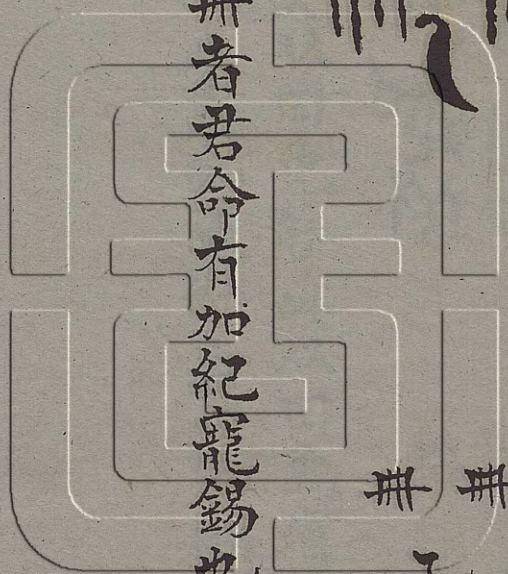 冊者君命有加紀寵錫也